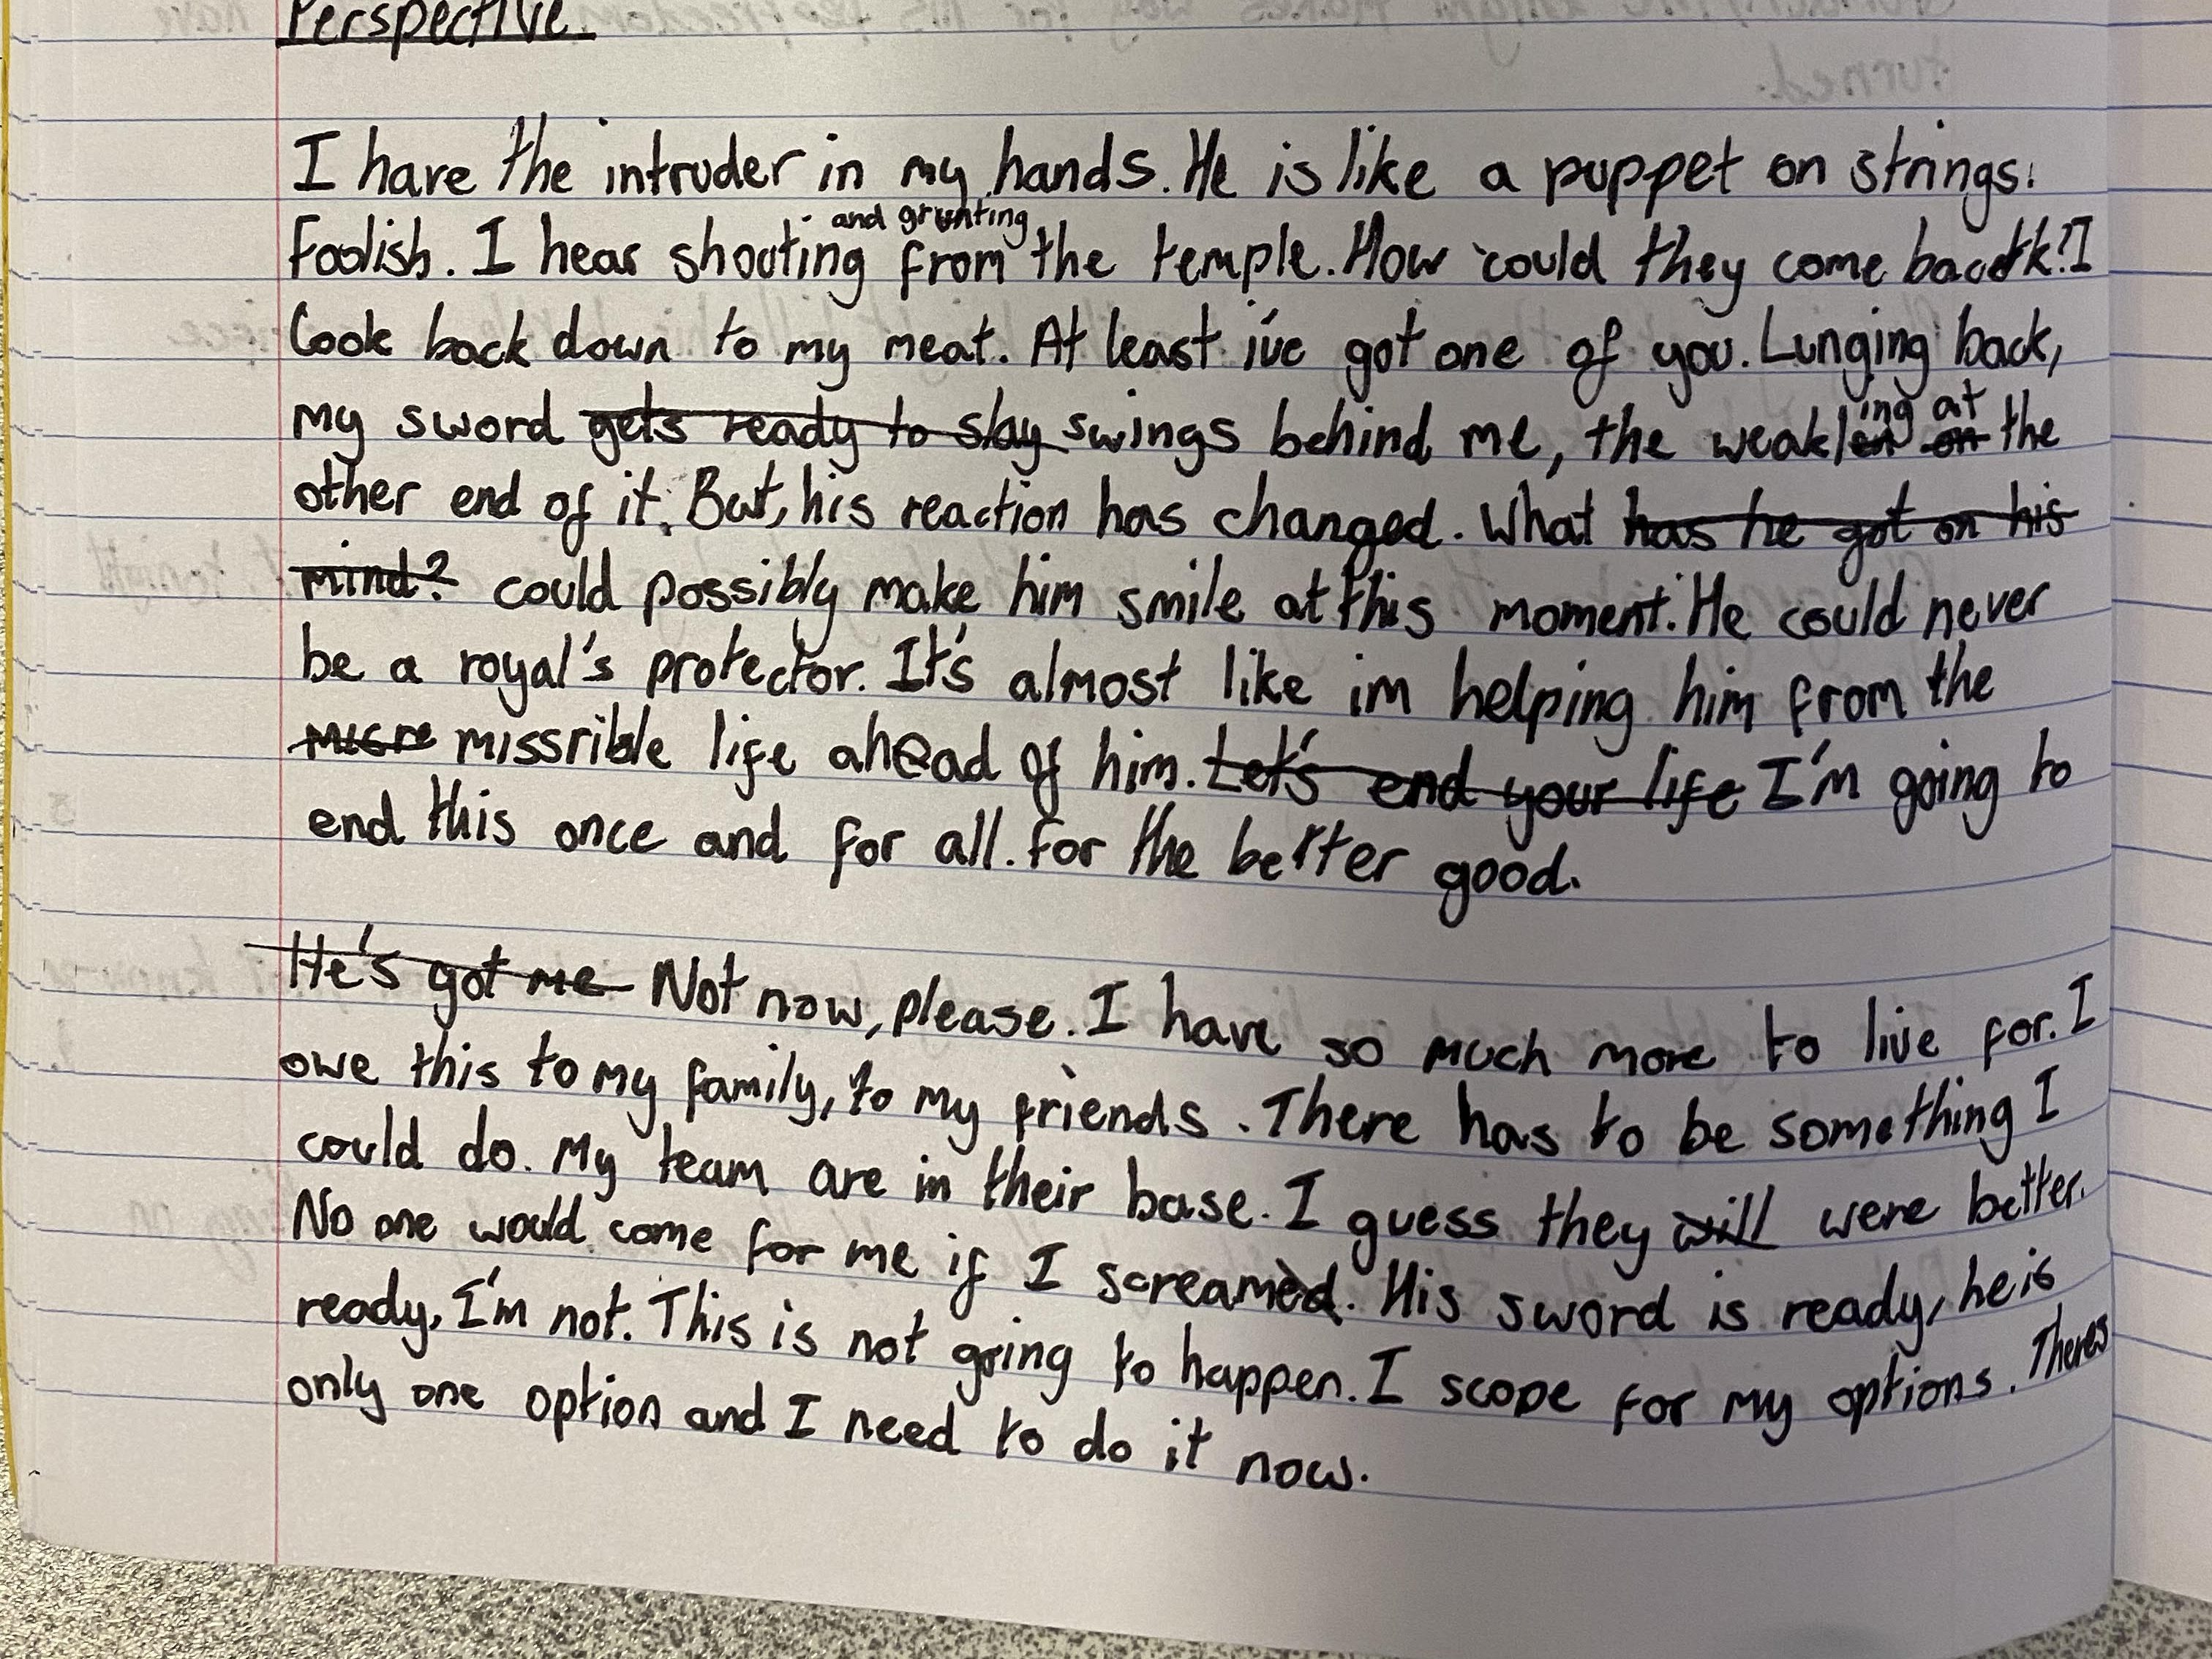 Perspective.
I have the intruder in my hands. He is like a puppet on strings.
Foolish. I hear shooting and grunting from the temple. How could they come back!? I
look back down to my meat. At least i've got one of you. Lunging back,
my sword gets ready to slay swings behind me, the weakling at on the
other end of it. But, his reaction has changed. What has he got on his
mind? could possibly make him smile at this moment. He could never
be a royal's protector. It's almost like im helping him from the
missrible life ahead of him. Let's end your life I'm going to
end this once and for all. for the better good.
He's got me Not now, please. I have so much more to live for. I
owe this to my family, to my friends. There has to be something I
could do. My team are in their base. I guess they will were better.
No one would come for me if I screamed. His sword is ready, he is
ready, I'm not. This is not going to happen. I scope for my options. Theres
only one option and I need to do it now.